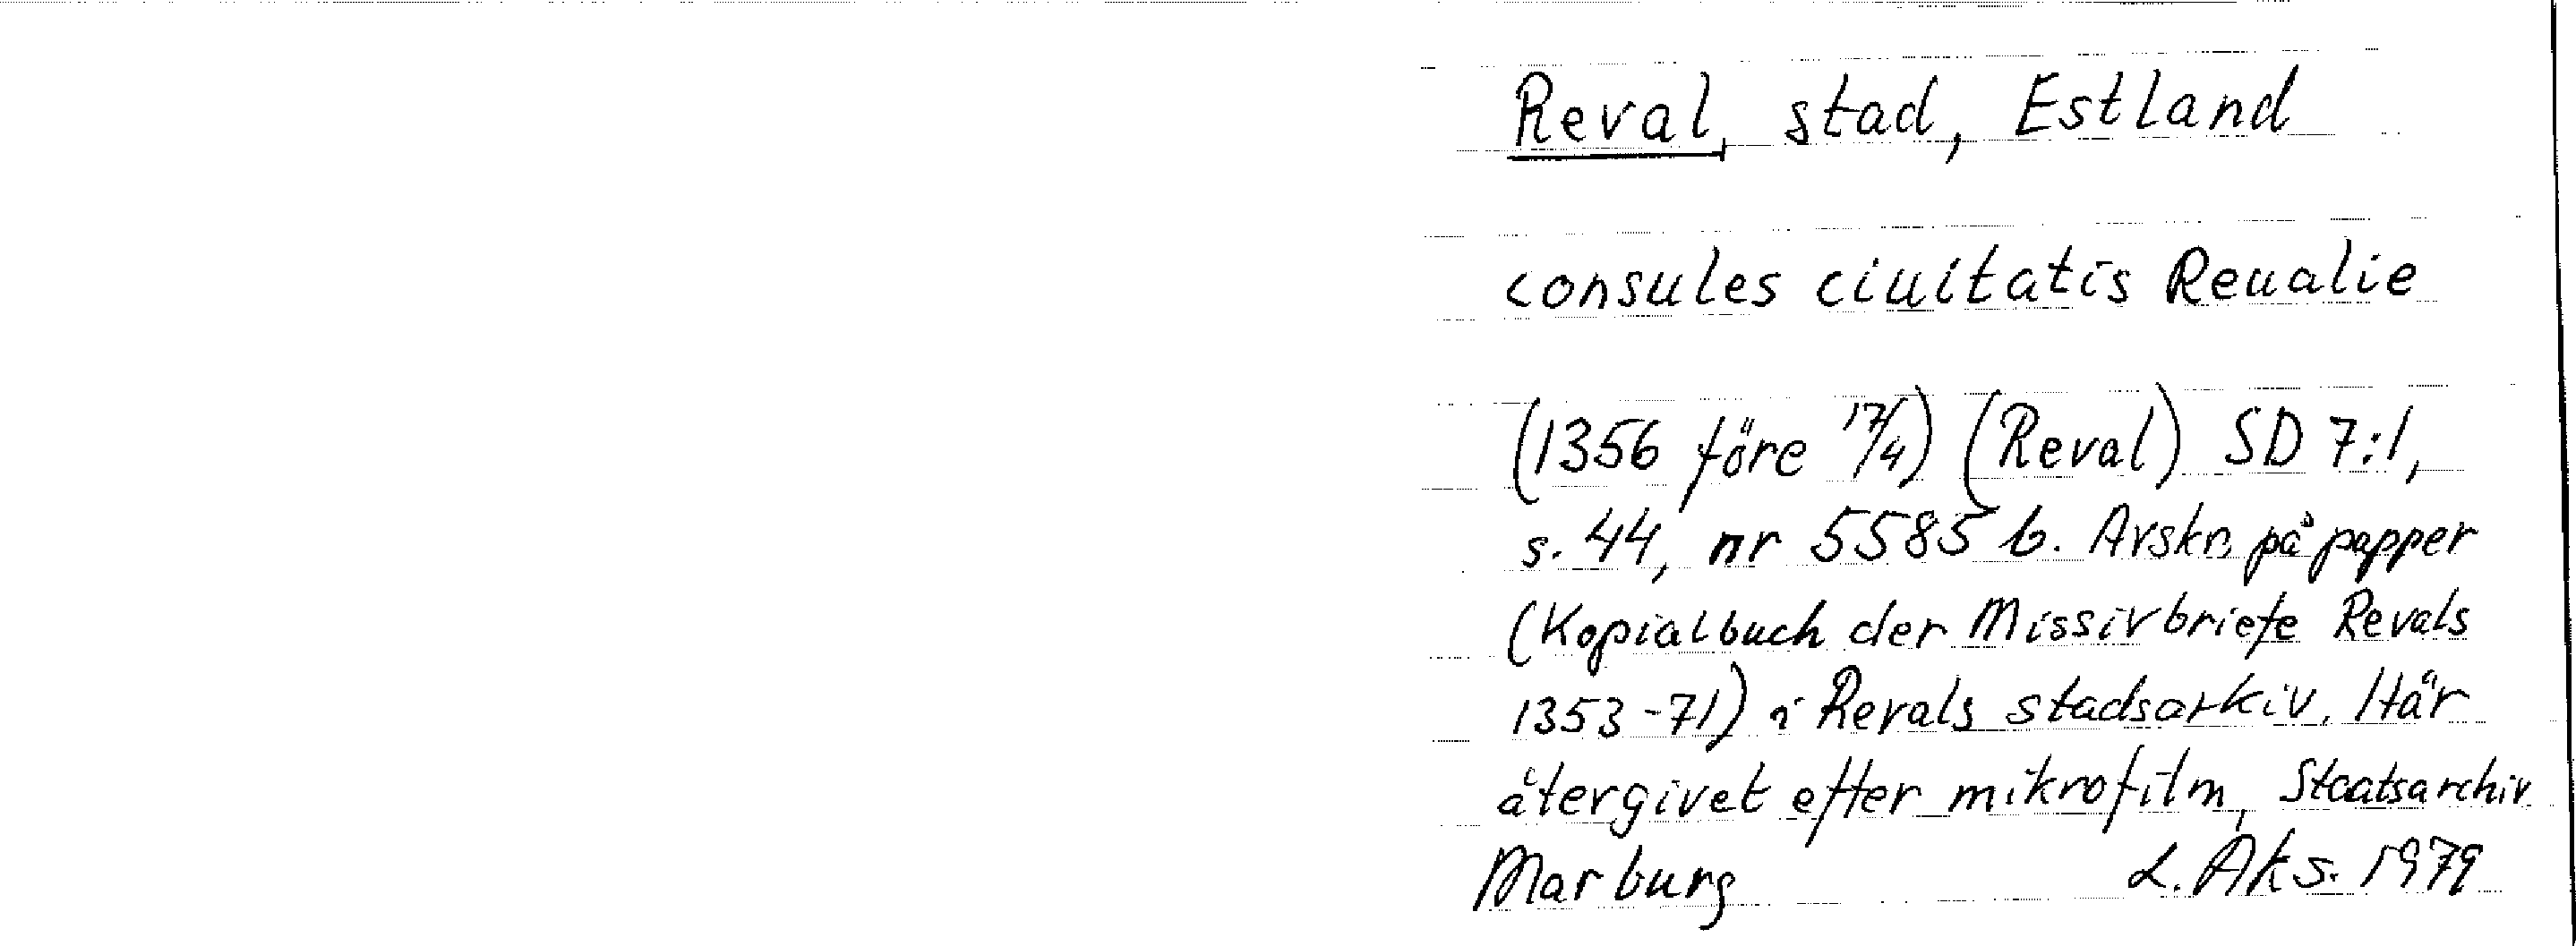 Reval, stad, Estland
consules ciuitatis Reualie
(1356 före 17/4) (Reval) SD 7:1,
s. 44, nr 5585 b. Avskr. på papper
(Kopialbuch der Missivbriefe Revals
1353-71) i Revals stadsarkiv. Här
återgivet efter mikrofilm, Staatsarchiv
Marburg L. Aks. 1979